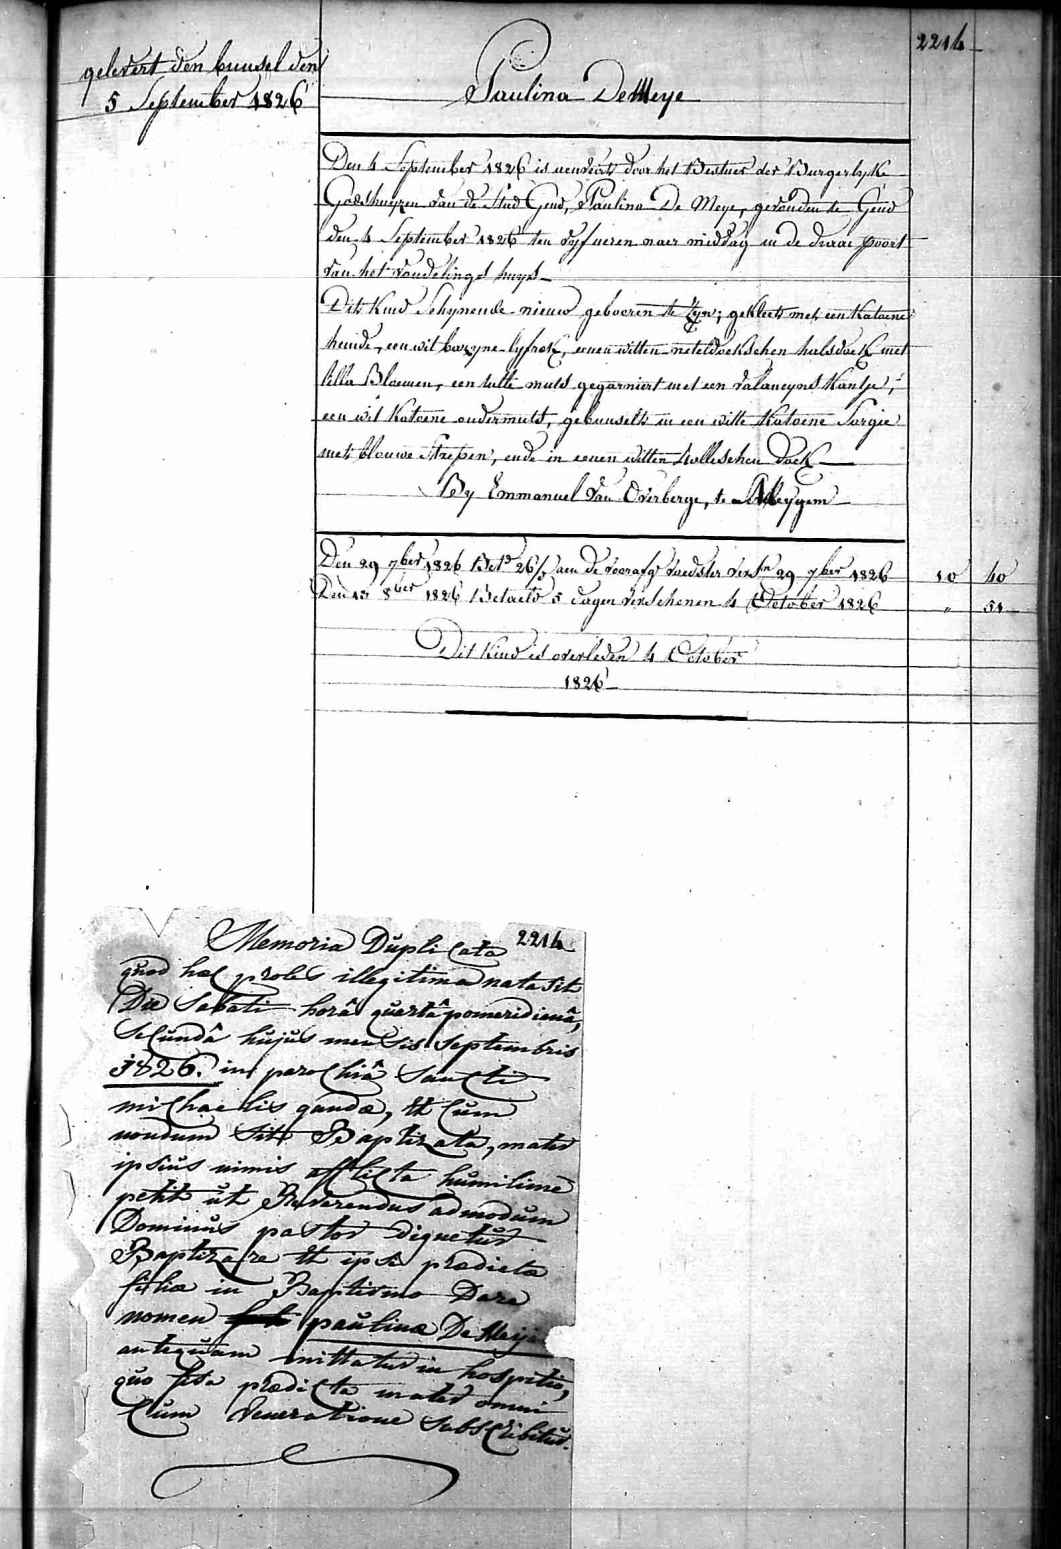 gelevert den bunsel den
5 September 1826
2214
Paulina De Meye
Den 4 September 1826 is aenveirt door het Bestuer der Burgerlyke
Godshuyzen van de Stad Gend, Paulina De Meye, gevonden te Gend
den 4 September 1826 ten vyf ueren naer middag in de draai poort
van het vondelings huys
Dit kind Schynende nieuw geboeren te zyn; gekleets met een katoene
hemde, een wit bazyne lyfrok, eenen witten neteldoekschen halsdoek met
lilla Bloemen, een tulle muts gegarniert met een valancynes kantje,
een wit katoene ondermuts, gebunselt in een witte katoene Sargie
met blouwe Strepen, ende in eenen witten wolleschen doek
By Emmanuel Van Overberge, te Meygem
Den 29 7ber 1826 Bet. 26/ aen de voorafg. voedster versch. 29 7ber 1826 10 40
Den 13 8ber 1826 Betaelt 5 dagen verschenen 4 October 1826 " 51
Dit kind is overleden 4 October
1826
Memoria Duplicata 2214
quod hæc proles illegitima nata sit
Die Sabati horâ quartâ pomeridianâ,
secundâ hujus mensis septembris
1826. in parochiâ Sancti
michaelis gandæ, et cum
nondum sit Baptizata, mater
ipsius nimis afflicta humilime
petit ut Reverendus admodum
Dominus pastor dignetur
Baptizare et ipsi prædicta
filiæ in Baptismo Dare
nomen paulinæ De Meije
antequam mittatur in hospitio,
quo facta prædicta mater omni
Cum Veneratione subscribitur.